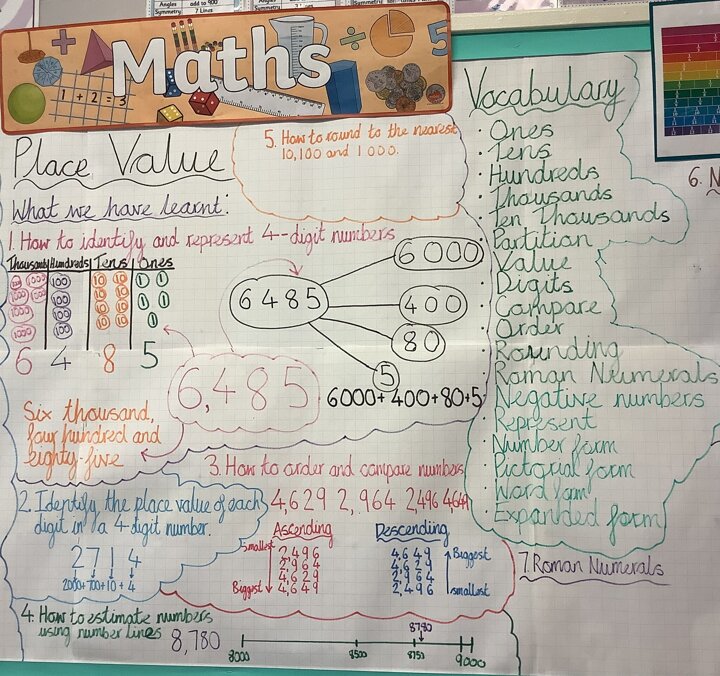 Angles add to 900
Symmetry: 7 Lines
Maths
1 + 2 = 3
5
Place Value
What we have learnt:
1. How to identify and represent 4--digit numbers
Thousands Hundreds Tens Ones
1000 1000 100 10 10 1 1
1000 1000 100 10 10 1 1
1000 100 10 10 1
1000 100 10 10
6 4 8 5
6,485
Six thousand,
four hundred and
eighty-five
6485
6000
400
80
5
6000+400+80+5
5. How to round to the nearest
10,100 and 1000.
2. Identify the place value of each
digit in a 4-digit number.
2714
2000+700+10+4
3. How to order and compare numbers
4,629 2,964 2,496 4649
Ascending
Smallest
2,496
2,964
4,629
4,649
Biggest
Descending
4,649
4,629
2,964
2,496
Biggest
smallest
4. How to estimate numbers
using number lines 8,780
8780
8000 8500 8750 9000
Vocabulary
· Ones
· Tens
· Hundreds
· Thousands
· Ten Thousands
· Partition
· Value
· Digits
· Compare
· Order
· Rounding
· Roman Neumerals
· Negative numbers
· Represent
· Number form
· Pictorial form
· Word form
· Expanded form
6. N
7. Roman Numerals